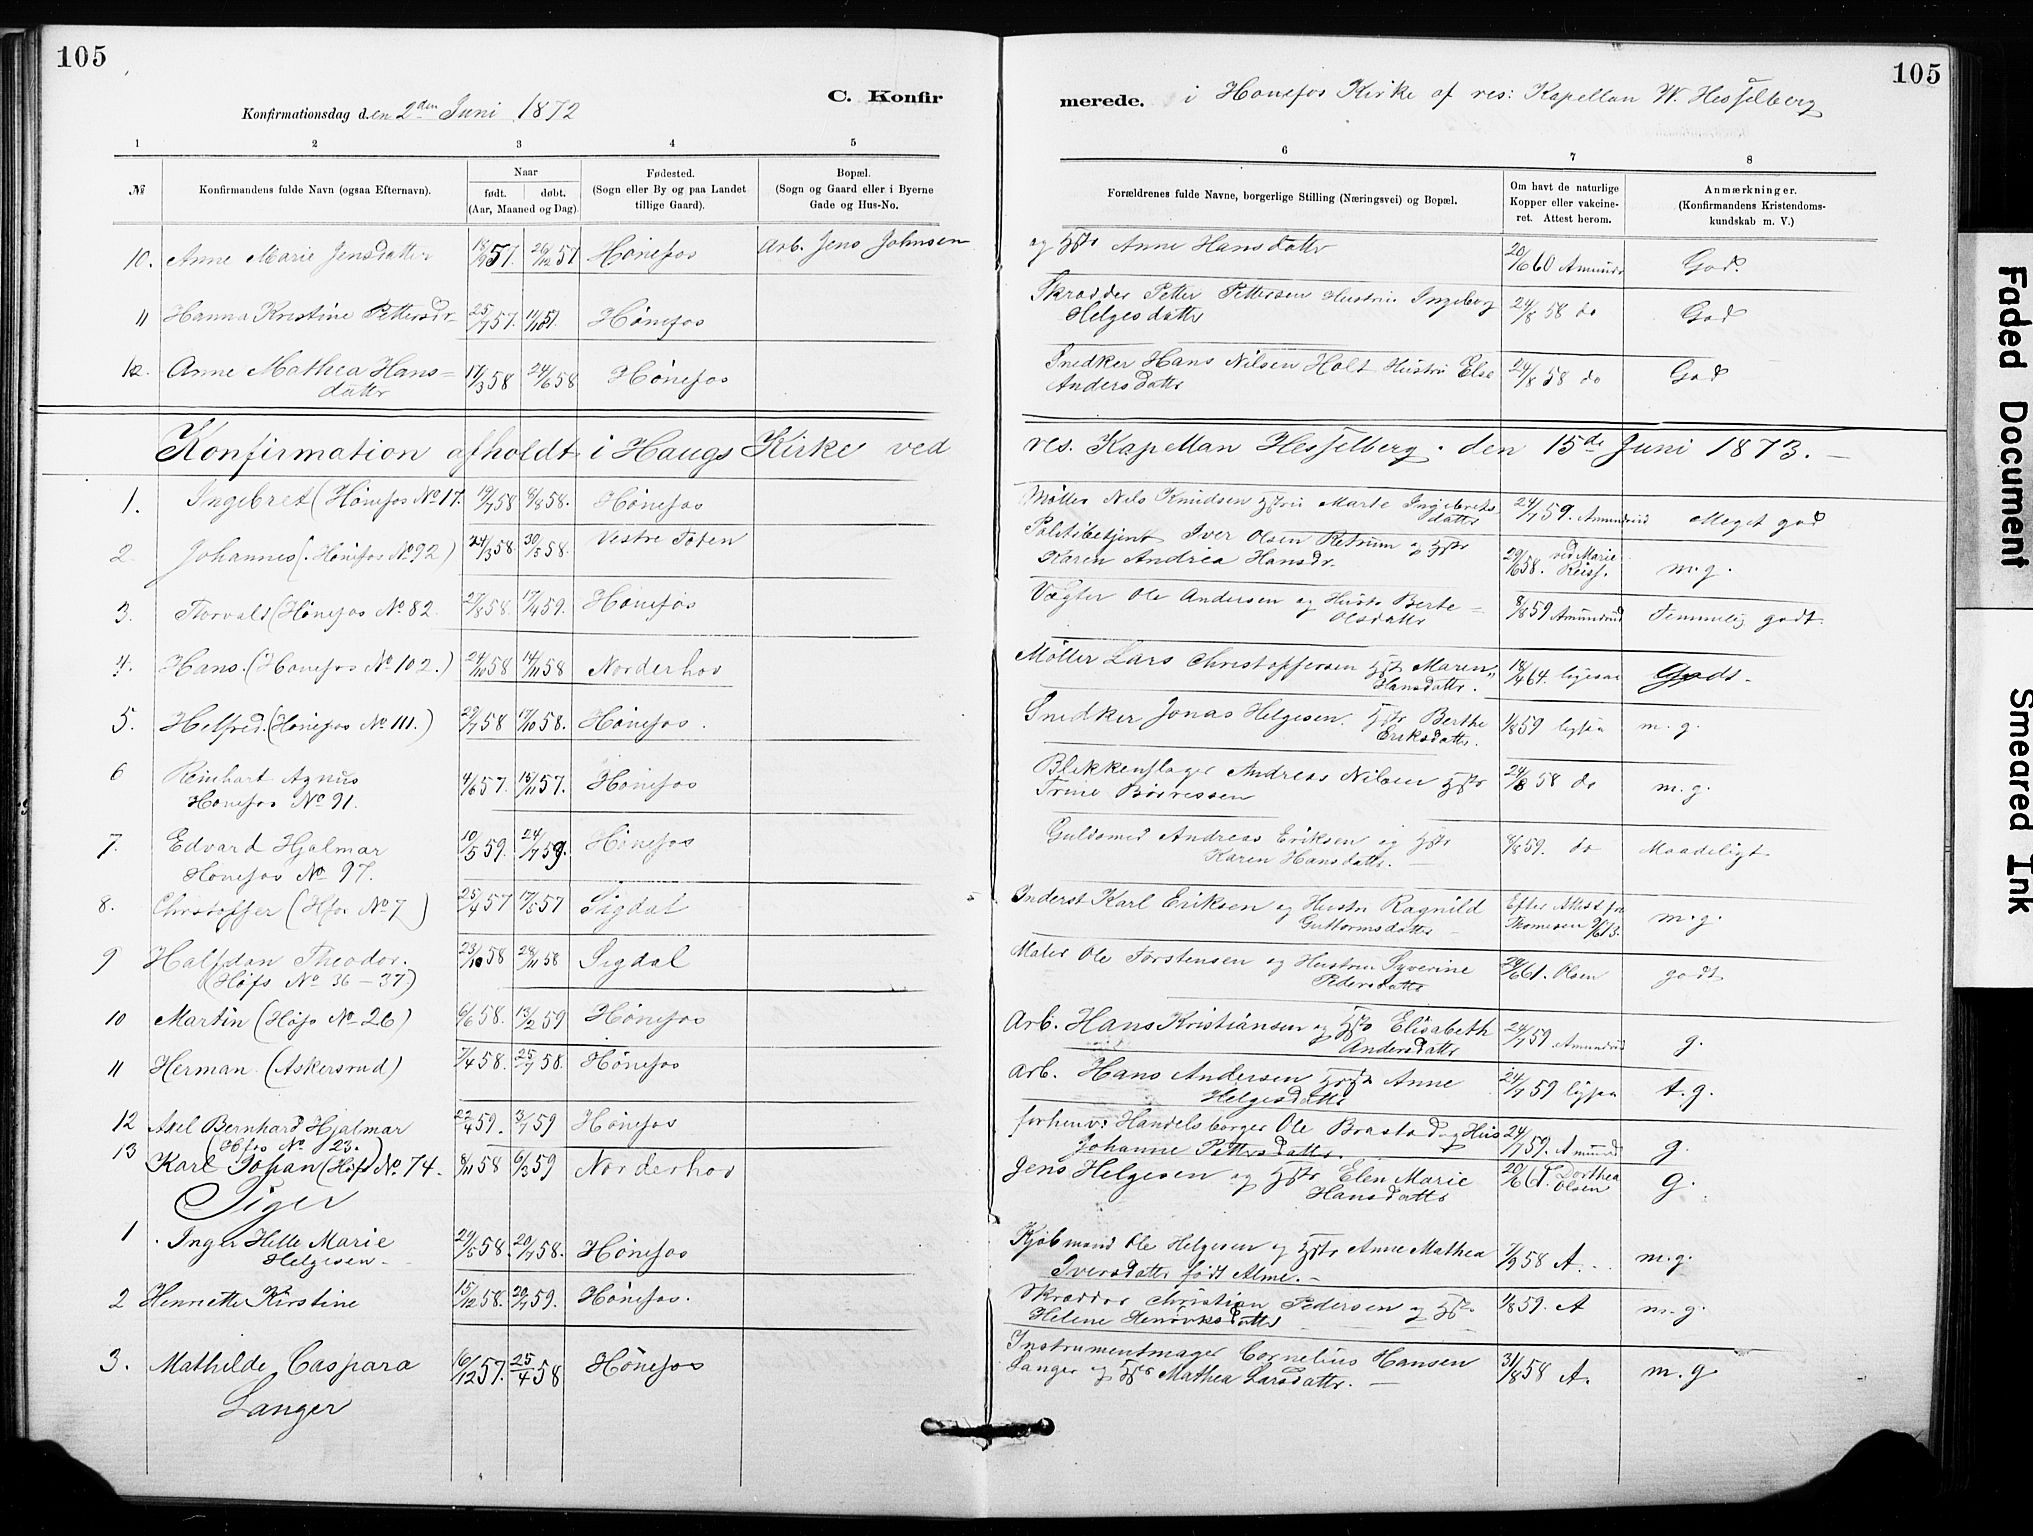 105
105
C. Konfir
merede. i Hønefos Kirke af res: Kapellan W. Hesselberg
Konfirmationsdag den 2den Juni 1872
1 2 3 4 5 6 7 8
№
Konfirmandens fulde Navn (ogsaa Efternavn).
Naar
født. døbt.
(Aar, Maaned og Dag).
Fødested.
(Sogn eller By og paa Landet
tillige Gaard).
Bopæl.
(Sogn og Gaard eller i Byerne
Gade og Hus-No.
Forældrenes fulde Navne, borgerlige Stilling (Næringsvei) og Bopæl.
Om havt de naturlige
Kopper eller vakcine-
ret. Attest herom.
Anmærkninger.
(Konfirmandens Kristendoms-
kundskab m. V.)
10. Anne Marie Jensdatter 26/12 57 Hønefos Arb. Jens Johnsen og Hstr Anne Hansdattr 20/6 60 God.
11 Hanna Kristine Pettersdr 25/7 57. Hønefos Skrædder Petter Pettersen Hustru Ingeborg 24/8 58 do God
Helgesdattr
12. Anne Mathea Hans= 17/3 58 24/6 58 Hønefos Snedker Hans Nilsen Holt Hustru Else 24/8 58 do God
dattr Andersdattr
Konfirmation afholdt i Haugs Kirke ved res. Kapellan Hesselberg. den 15de Juni 1873.
1. Ingebret (Hønefos No 17. 19/7 58 8/8 58. Hønefos Møller Nils Knudsen Hstru Marte Ingebrets 24/7 59. Amundrud Meget god
dattr
2. Johannes (Hønefos No 92) 24/3 58. 30/5 58. Vestre Toten Politibetjent Iver Olsen og Hstr 29/6 58. ved Marie m.g.
Karen Andrea Hansdr.
3. Thorvald (Hønefos No 82. 27/8 58. 17/4 59. Hønefos Vægter Ole Andersen og Hustr Berte= 8/8 59 Amundrud Temmelig godt
Olsdattr
4. Hans. (Hønefos No 102.) 24/10 58 14/11 58 Norderhov Møller Lars Christoffersen Hstr Maren 18/4 64. ligesaa Godt.
Hansdattr.
5. Helfred. (Hønefos No 111.) 29/7 58 17/10 58. Hønefos. Snedker Jonas Helgesen. Hstr Berthe 1/8 59 m.g.
Eriksdattr.
6 Reinhart Agnus 4/6 57. 15/11 57. Hønefos Blikkenslager Andreas Nilsen Hstr 24/8 58 do m.g.
Hønefos No 91. Trine Børresen
7. Edvard Hjalmar 10/5 59. 24/7 59. Hønefos Guldsmed Andreas Eriksen og Hstr 8/8 59. do Maadeligt
Hønefos No 97. Karen Hansdattr.
8. Christoffer (Hfos No 7) 25/4 57 17/5 57 Sigdal Inderst Karl Eriksen og Hustr Ragnild Efter Attest fra m.g.
Guttormsdattr Thomesen
9 Halfdan Theodor. 23/10 58 28/11 58 Sigdal Maler Ole Torstensen og Hustru Syverine Olsen godt
(Høfs No 36-37) Pedersdattr
10 Martin (Høfs No 26) 6/6 58. 13/2 59 Hønefos Arb. Hans Kristiansen og Hstr Elisabeth 24/7 59. Amundrud g.
Andersdattr
11 Herman (Askersrud) 7/4 58. 25/7 58. Hønefos Arb. Hans Andersen Hstr Anne 24/7 59 t.g.
Helgesdattr
12 Axel Bernhard Hjalmar 22/4 59. 3/7 59 Hønefos forhenv: Handelsborger Ole Brastad og Hus 24/7 59. g.
(Hfos No 23. Johanne Pettersdattr.
13 Karl Johan (Høfs No 74. 8/11 58 6/3 59 Norderhov Jens Helgesen og Hstr Elen Marie 20/6 61. Dorthea g.
Hansdattr Olsen
Piger
1 Inger Helle Marie 29/5 58. 20/7 58. Hønefos Kjøbmand Ole Helgesen og Hstr Anne Mathea 7/9 58 A. m.g.
Helgesen Iversdattr født Alme.
2 Henriette Kirstine 15/12 58. 20/7 59. Hønefos. Skrædder Christian Pedersen og Hstr 1/8 59. A m.g.
Helene Henriksdattr
3. Mathilde Caspara 16/12 57. 25/4 58 Hønefos Instrumentmager Cornelius Hansen 31/8 58 A. m.g
Langer Langer og Hstr Mathea Larsdattr.
Faded Document
Smeared Ink